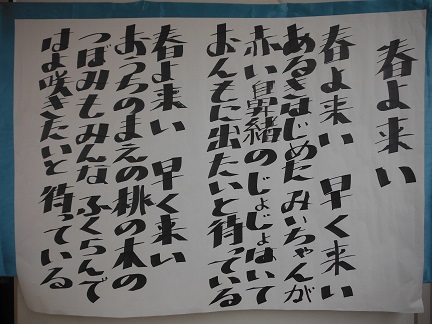 春よ来い
春よ来い 早く来い
あるきはじめた みいちゃんが
赤い鼻緒の じょじょはいて
おんもに出たいと 待っている
春よ来い 早く来い
おうちのまえの 桃の木の
つぼみもみんな ふくらんで
はよ咲きたいと 待っている